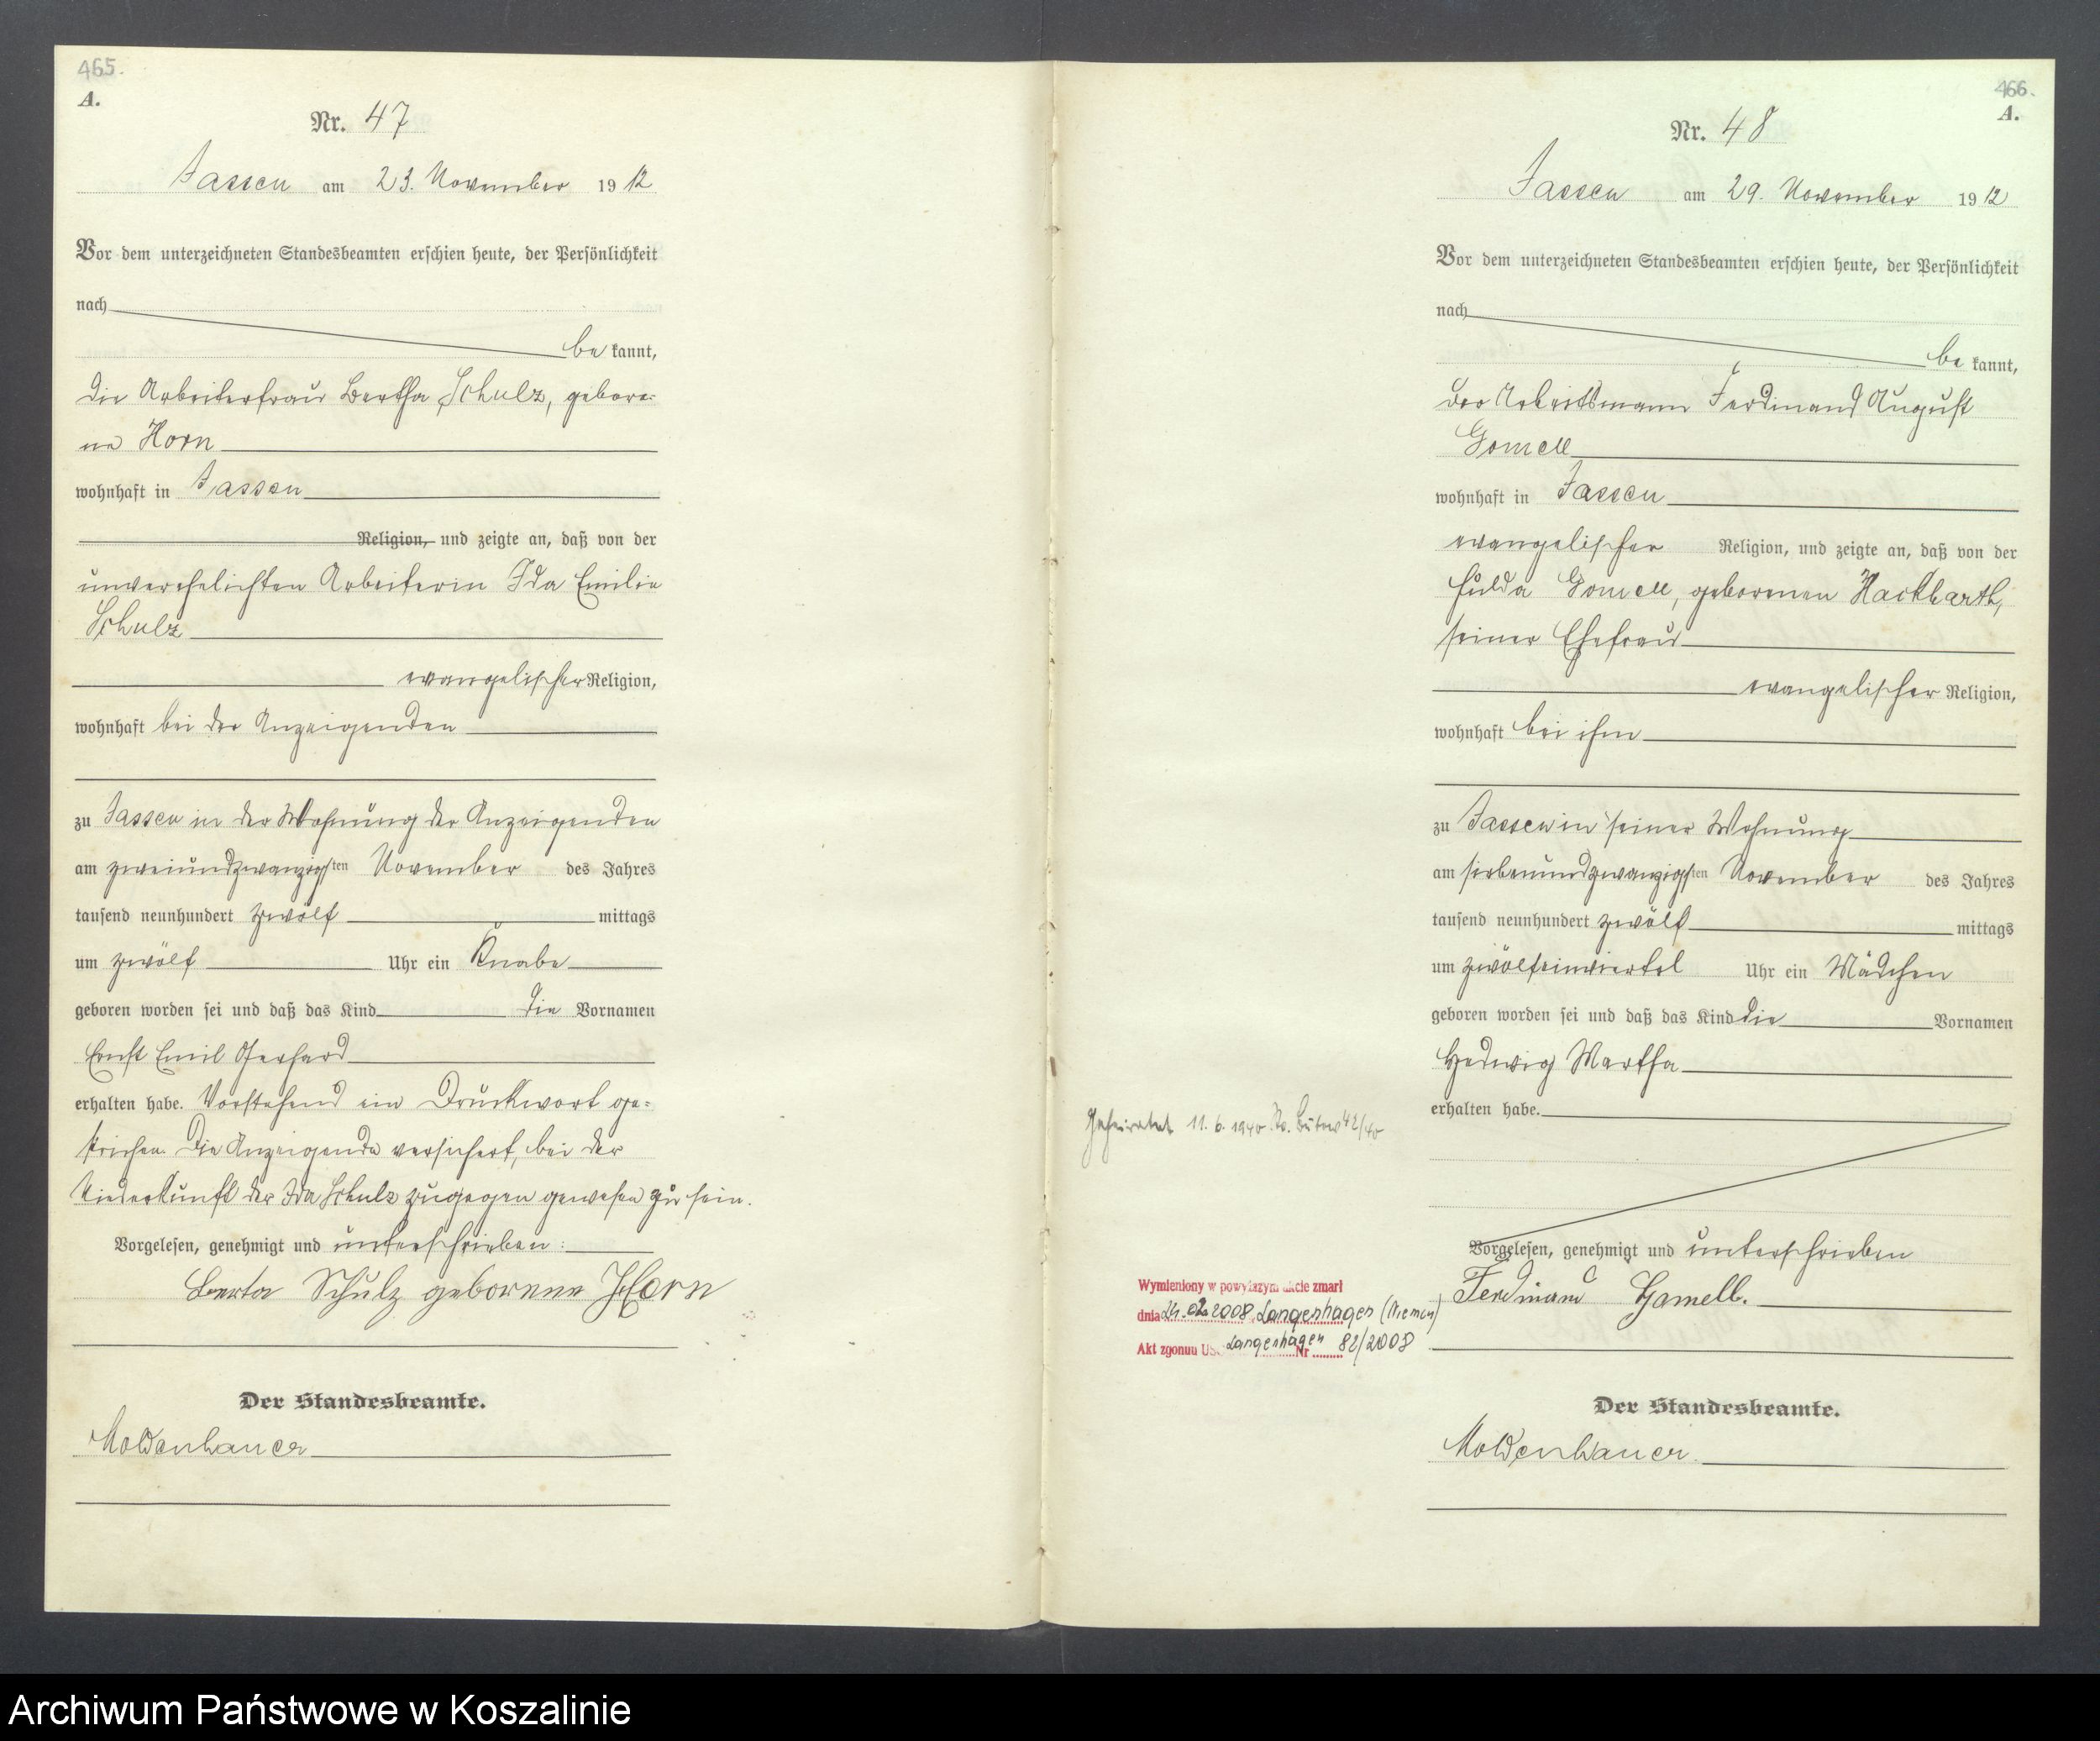 465.
A.
Nr. 47
Jassen am 23. November 1912
Vor dem unterzeichneten Standesbeamten erschien heute, der Persönlichkeit
nach
be kannt,
die Arbeiterfrau Bertha Schulz, gebore-
ne Horn
wohnhaft in Jassen
Religion, und zeigte an, daß von der
unverehelichten Arbeiterin Ida Emilie
Schulz
evangelischer Religion,
wohnhaft bei der Anzeigenden
zu Jassen in der Wohnung der Anzeigenden
am zweiundzwanzigsten November des Jahres
tausend neunhundert zwölf mittags
um zwölf Uhr ein Knabe
geboren worden sei und daß das Kind die Vornamen
Ernst Emil Gerhard
erhalten habe. Vorstehend ein Druckwort ge-
strichen. Die Anzeigende versichert, bei der
Niederkunft der Ida Schulz zugegen gewesen zu sein.
Vorgelesen, genehmigt und unterschrieben:
Berta Schulz geborene Horn
Der Standesbeamte.
Moldenhauer
466.
A.
Nr. 48
Jassen am 29. November 1912
Vor dem unterzeichneten Standesbeamten erschien heute, der Persönlichkeit
nach
be kannt,
der Arbeitsmann Ferdinand August
Gomell
wohnhaft in Jassen
evangelischer Religion, und zeigte an, daß von der
Hulda Gomell, geborenen Hackbarth,
seiner Ehefrau
evangelischer Religion,
wohnhaft bei ihm
zu Jassen in seiner Wohnung
am siebenundzwanzigsten November des Jahres
tausend neunhundert zwölf mittags
um zwölfeinviertel Uhr ein Mädchen
geboren worden sei und daß das Kind die Vornamen
Hedwig Martha
erhalten habe.
Geheiratet 11.6.1940 St. Bütow 42/40
Vorgelesen, genehmigt und unterschrieben
Ferdinand Gamell.
Wymieniony w powyższym akcie zmarł
dnia 24.02.2008 Langenhagen (Niemcy)
Akt zgonu USC Langenhagen Nr 82/2008
Der Standesbeamte.
Moldenhauer.
Archiwum Państwowe w Koszalinie